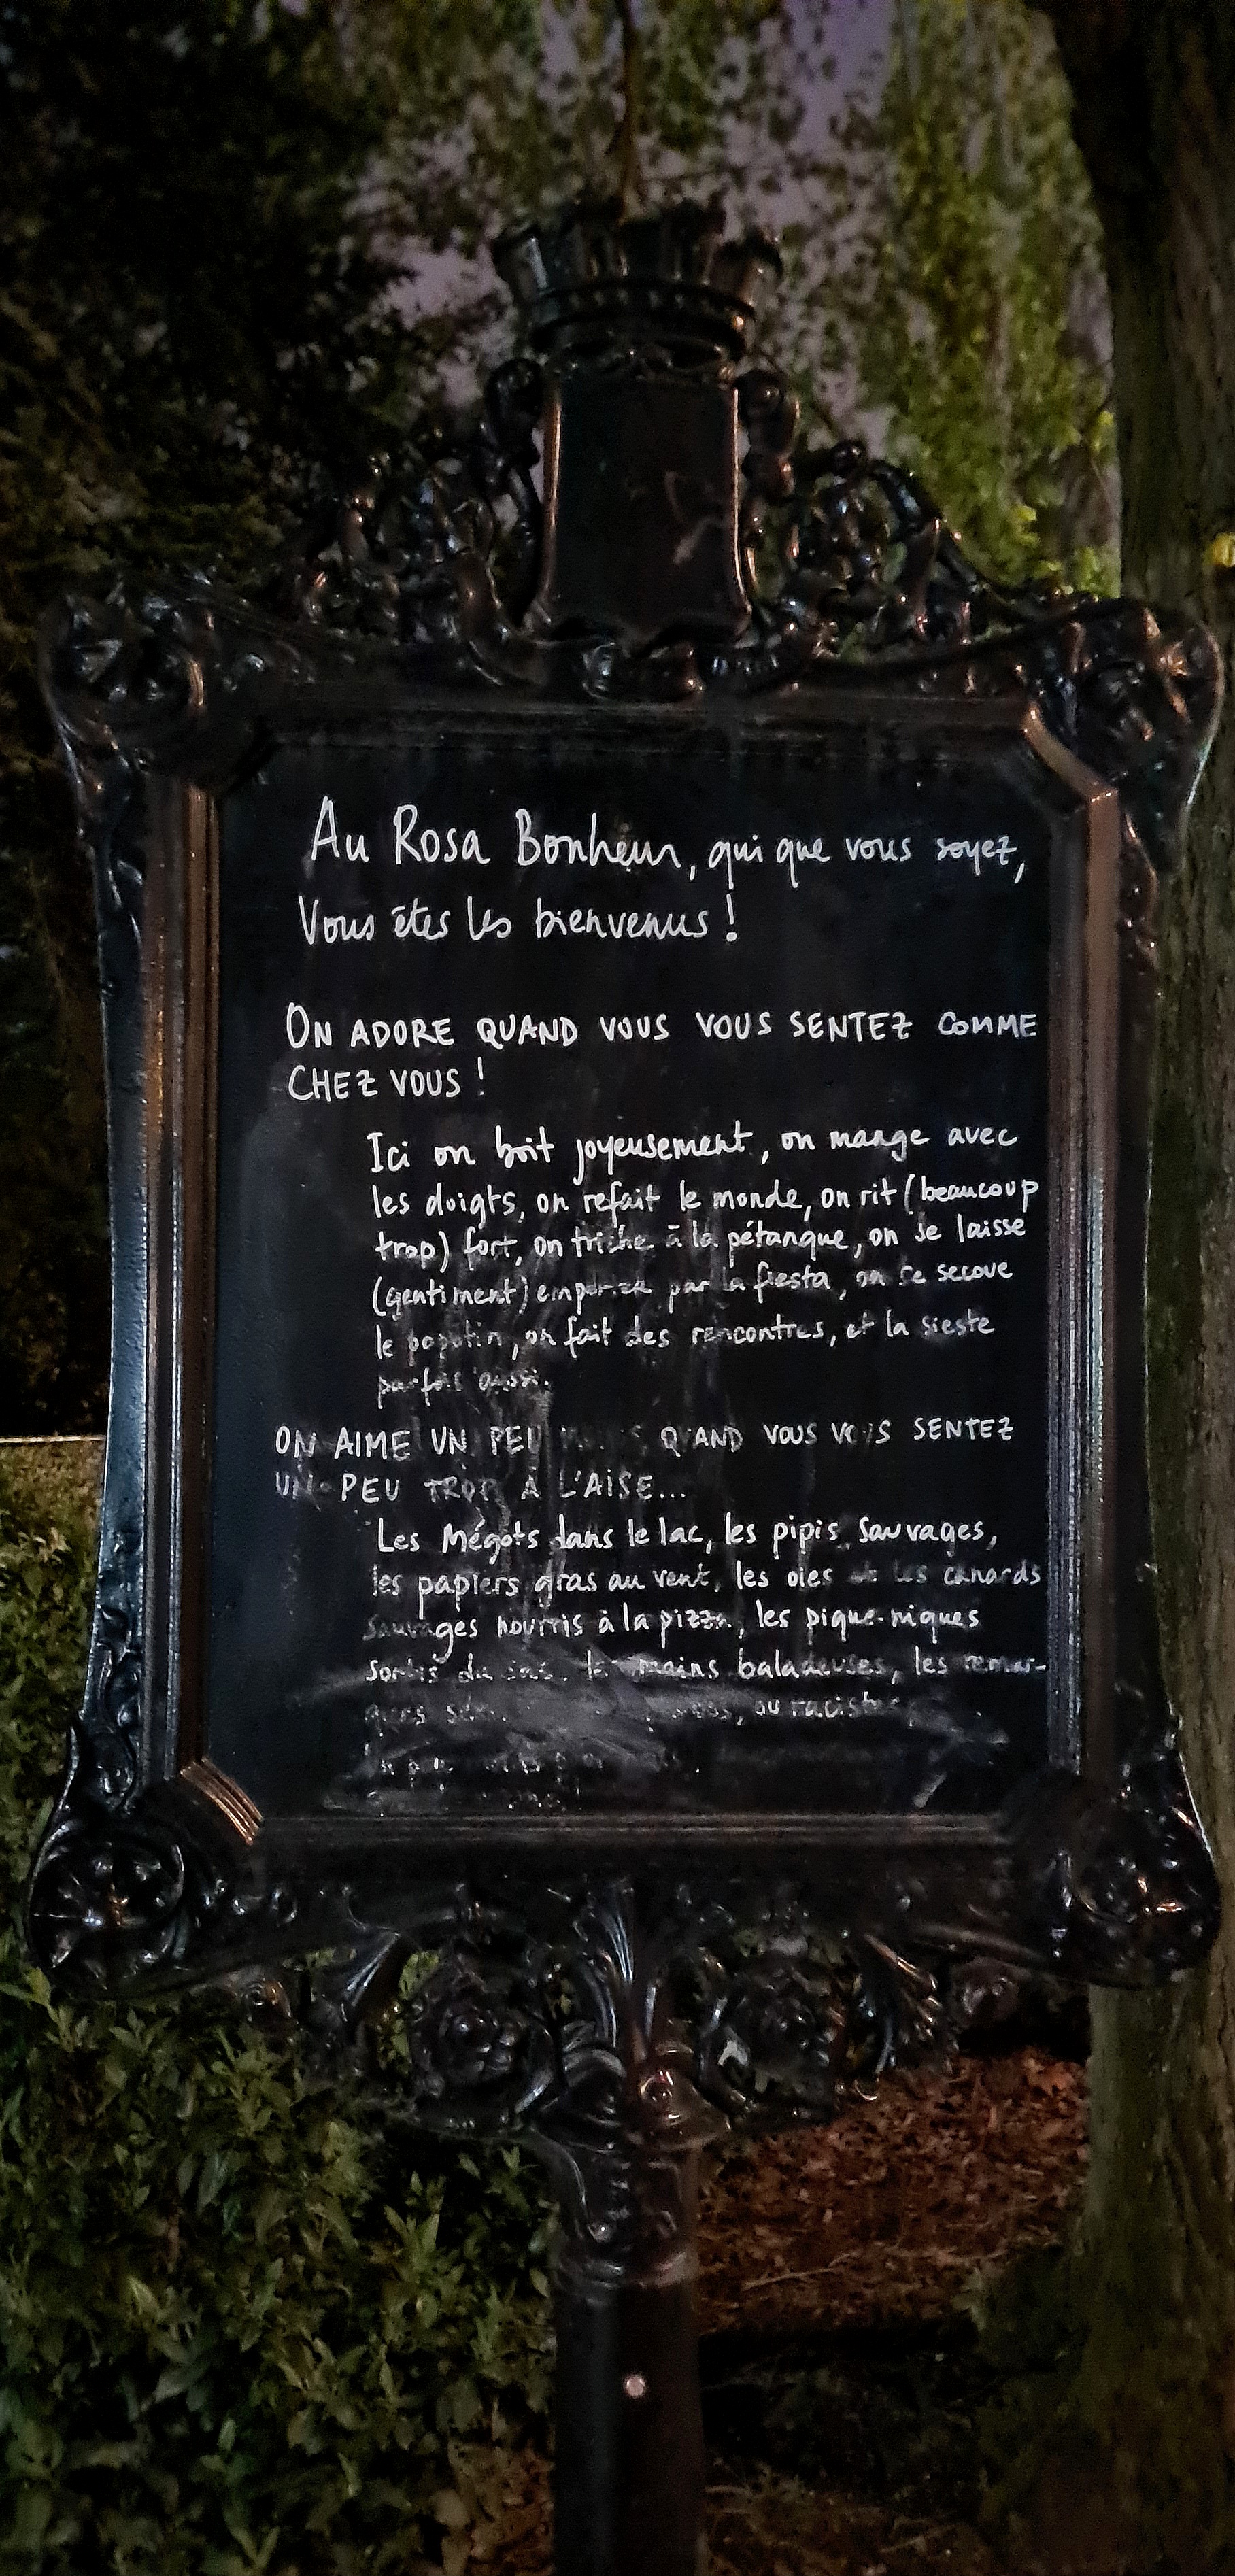 Au Rosa Bonheur, qui que vous soyez,
Vous êtes les bienvenus !
ON ADORE QUAND VOUS VOUS SENTEZ COMME
CHEZ VOUS !
Ici on boit joyeusement, on mange avec
les doigts, on refait le monde, on rit (beaucoup
trop) fort, on triche à la pétanque, on se laisse
(gentiment) emporter par la fiesta, on se secoue
le popotin, on fait des rencontres, et la sieste
parfois aussi.
ON AIME UN PEU QUAND VOUS VOUS SENTEZ
UN PEU TROP À L'AISE...
Les Mégots dans le lac, les pipis sauvages,
les papiers gras au vent, les oies et les canards
sauvages nourris à la pizza, les pique-niques
sortis du sac, mains baladeuses, les remar-
ques ou racistes